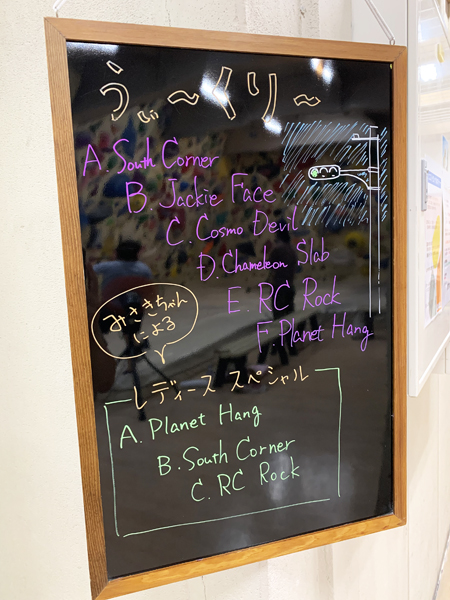 うぃ〜くり〜
A. South Corner
B. Jackie Face
C. Cosmo Devil
D. Chameleon Slab
E. RC Rock
F. Planet Hang
みさきちゃん
による
レディース スペシャル
A. Planet Hang
B. South Corner
C. RC Rock